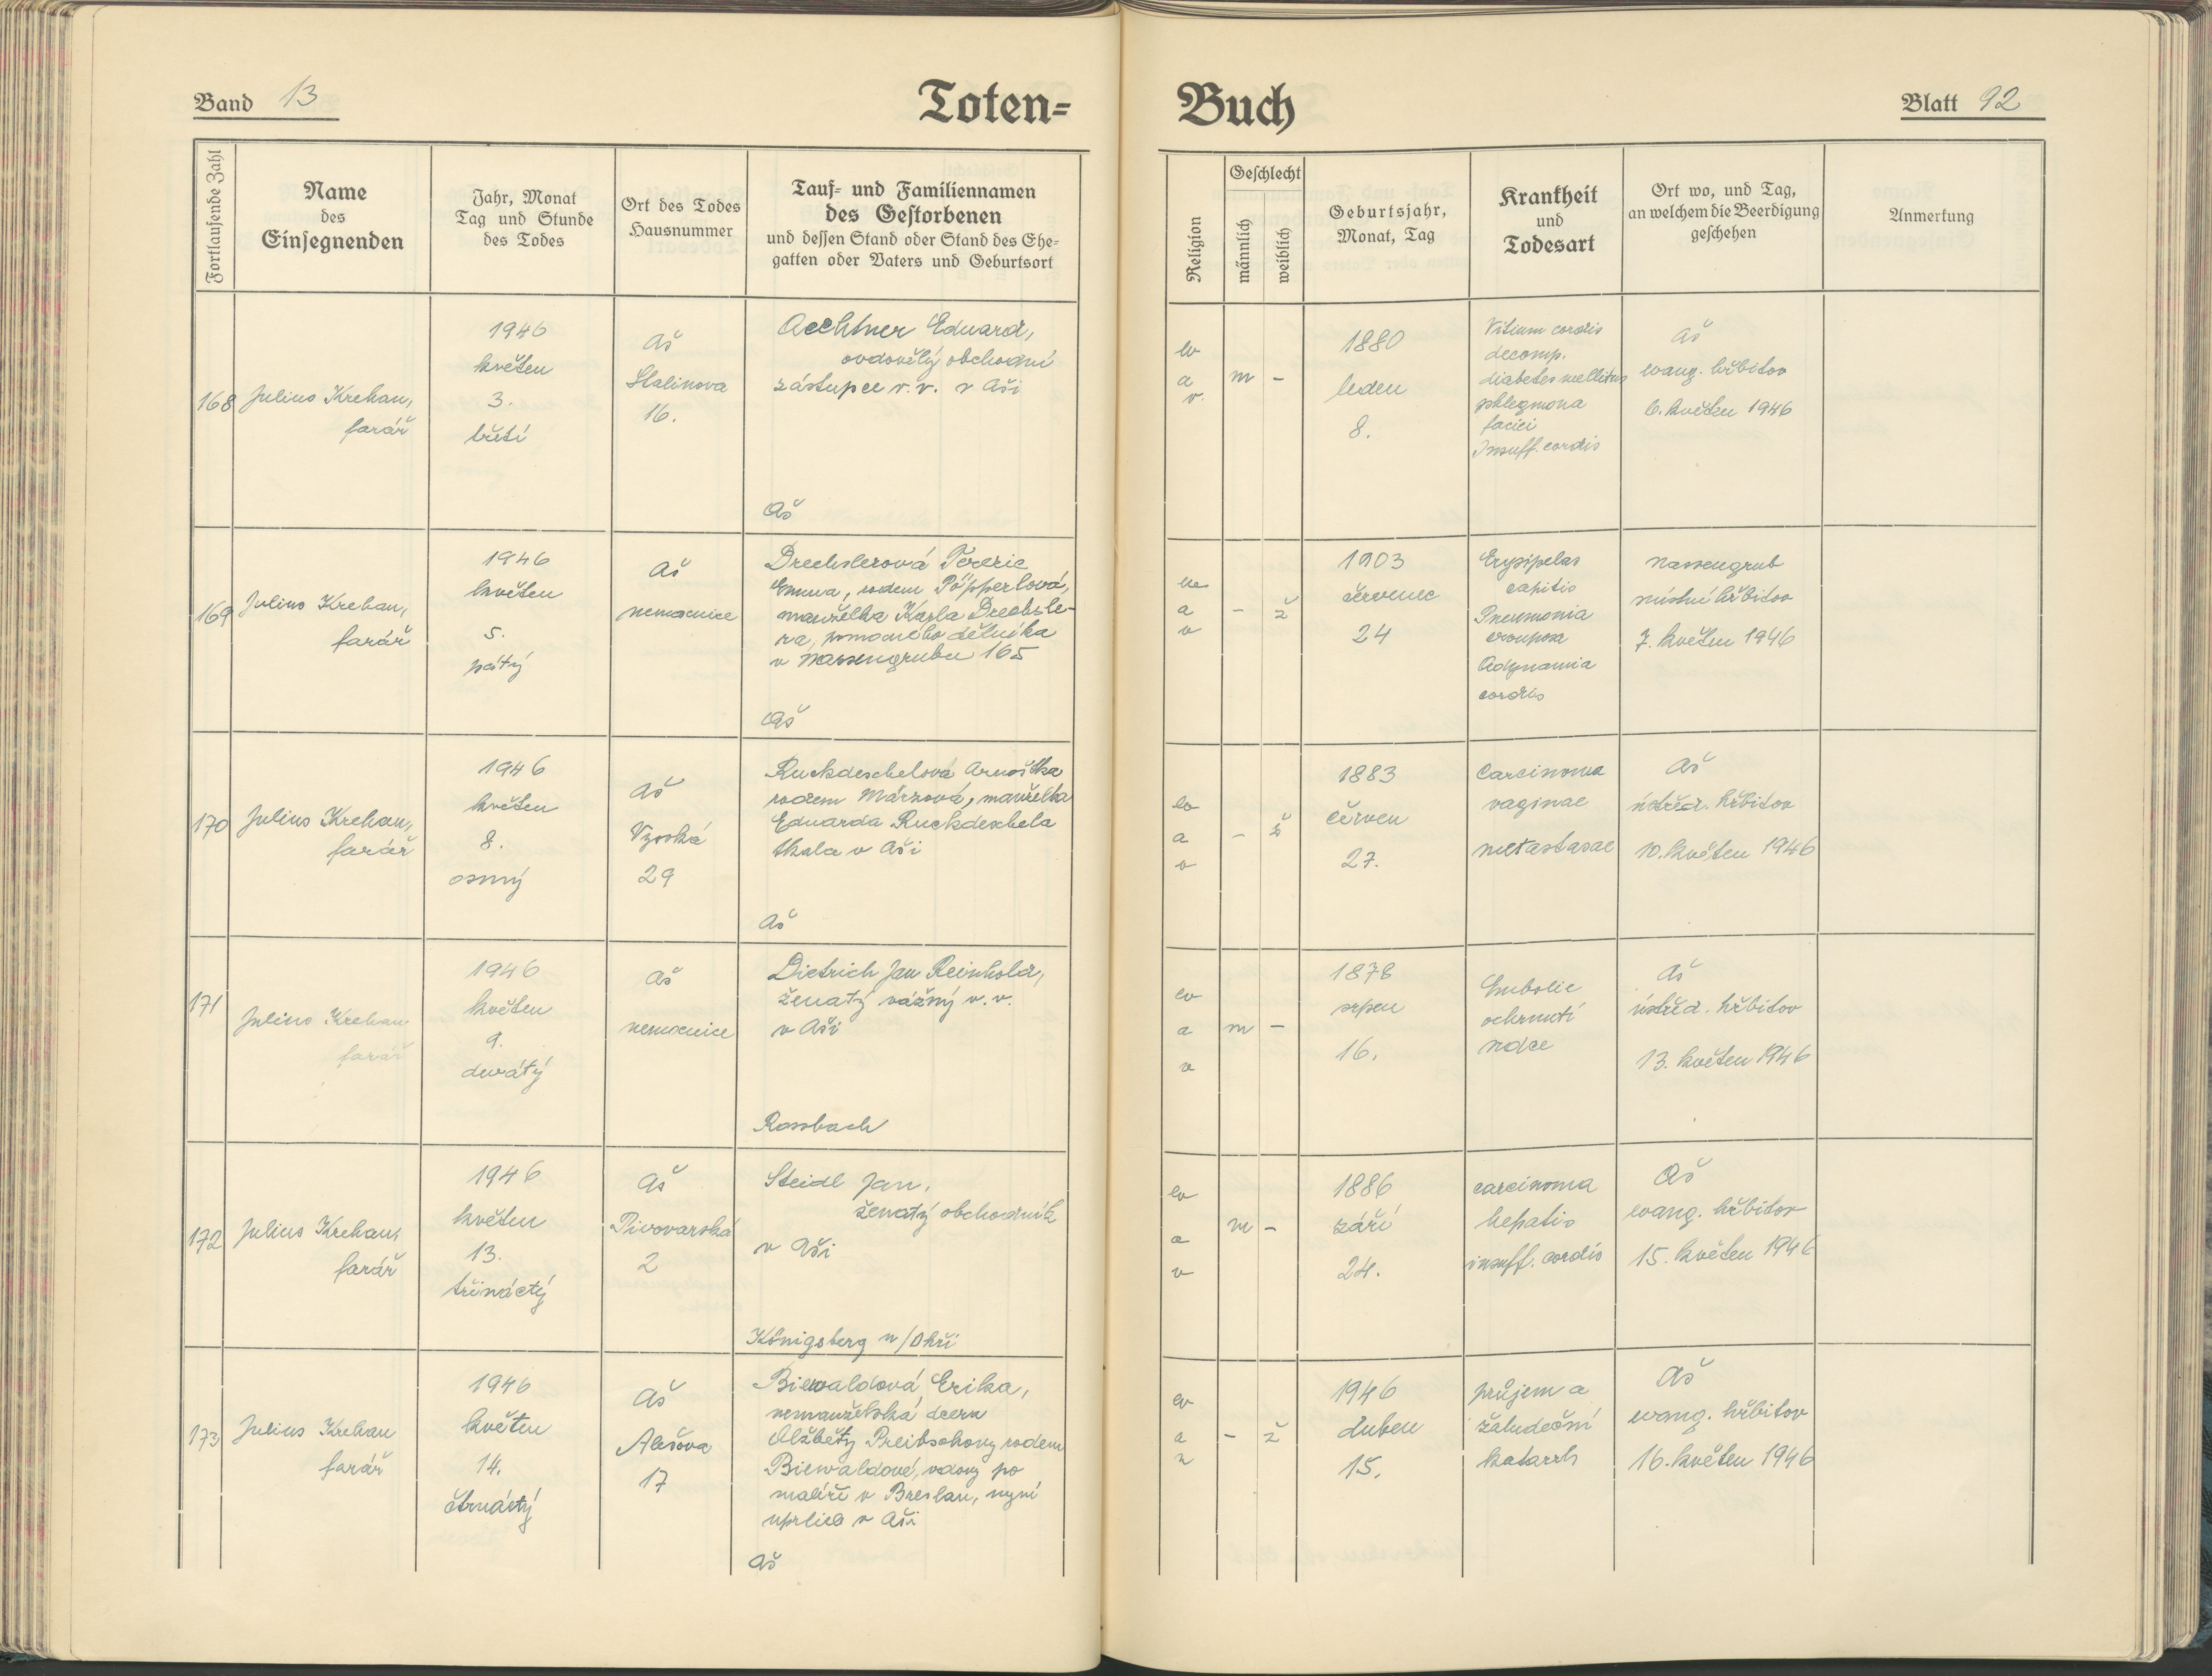 Band 13
Toten-
Buch
Blatt 92
Fortlaufende Zahl
Name
des
Einsegnenden
Jahr, Monat
Tag und Stunde
des Todes
Ort des Todes
Hausnummer
Tauf- und Familiennamen
des Gestorbenen
und dessen Stand oder Stand des Ehe-
gatten oder Vaters und Geburtsort
Religion
Geschlecht
männlich
weiblich
Geburtsjahr,
Monat, Tag
Krankheit
und
Todesart
Ort wo, und Tag,
an welchem die Beerdigung
geschehen
Anmerkung
168
Julius Krehan,
farář
1946
květen
3.
třetí
Aš
Stalinova
16.
Aechtner Eduard,
ovdovělý obchodní
zástupce v. v. v Aši
Aš
ev
a
v.
m
-
1880
leden
8.
Vitium cordis
decomp.
diabetes mellitus
phlegmona
faciei
Insuff. cordis
Aš
evang. hřbitov
6. květen 1946
169
Julius Krehan,
farář
1946
květen
5.
pátý
Aš
nemocnice
Drechslerová Terezie
Emma, rodem Pöpperlová,
manželka Karla Drechsle-
ra, pomocného dělníka
v Nassengrubu 165
Aš
a
v
-
ž
1903
červenec
24
Erysipelas
capitis
Pneumonia
crouposa
Adynamia
cordis
Nassengrub
místní hřbitov
7. květen 1946
170
Julius Krehan,
farář
1946
květen
8.
osmý
Aš
Vysoká
29
Ruckdeschelová Arnoštka
rodem Märzová, manželka
Eduarda Ruckdeschela
tkala v Aši
Aš
ev
a
v
-
ž
1883
červen
27.
Carcinoma
vaginae
metastasae
Aš
ústřed. hřbitov
10. květen 1946
171
Julius Krehan
farář
1946
květen
9.
devátý
Aš
nemocnice
Dietrich Jan Reinhold,
ženatý vážný v. v.
v Aši
Rossbach
ev
a
v
m
-
1878
srpen
16.
Embolie
ochrnutí
srdce
Aš
ústřed. hřbitov
13. květen 1946
172
Julius Krehan,
farář
1946
květen
13.
třináctý
Aš
Pivovarská
2
Steidl Jan,
ženatý obchodník
v Aši
Königsberg n/Ohří
ev
a
v
m
-
1886
září
24.
carcinoma
hepatis
insuff. cordis
Aš
evang. hřbitov
15. květen 1946
173
Julius Krehan
farář
1946
květen
14.
čtrnáctý
Aš
Alešova
17
Biewaldová Erika,
nemanželská dcera
Alžběty Preibschovy rodem
Biewaldové, vdovy po
malíři v Breslau, nyní
uprlice v Aši
Aš
ev
a
-
ž
1946
duben
15.
průjem a
žaludeční
katarrh
Aš
evang. hřbitov
16. květen 1946